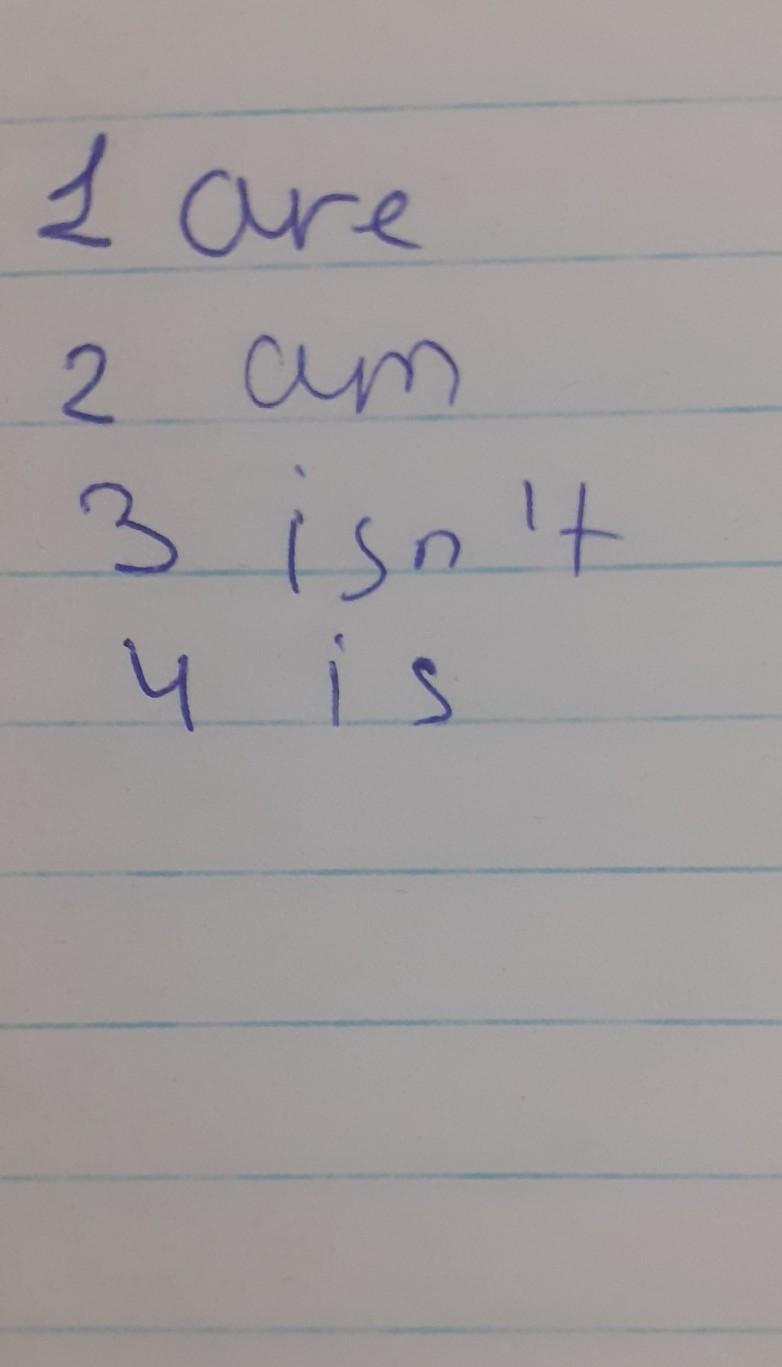 1 are
2 am
3 isn't
4 is